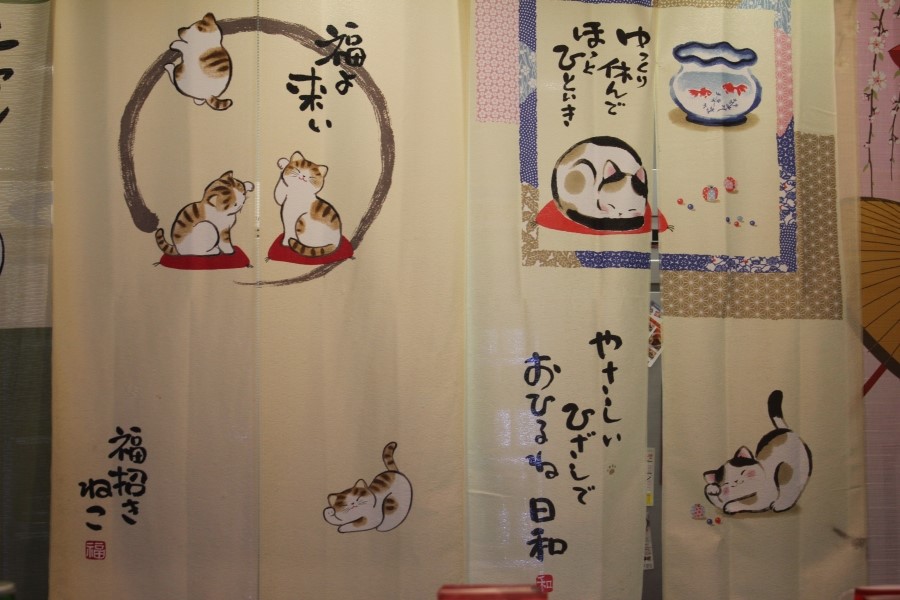 福よ
来い
福招き
ねこ
福
ゆっくり
休んで
ほっと
ひといき
やさしい
ひざしで
おひるね日和
和